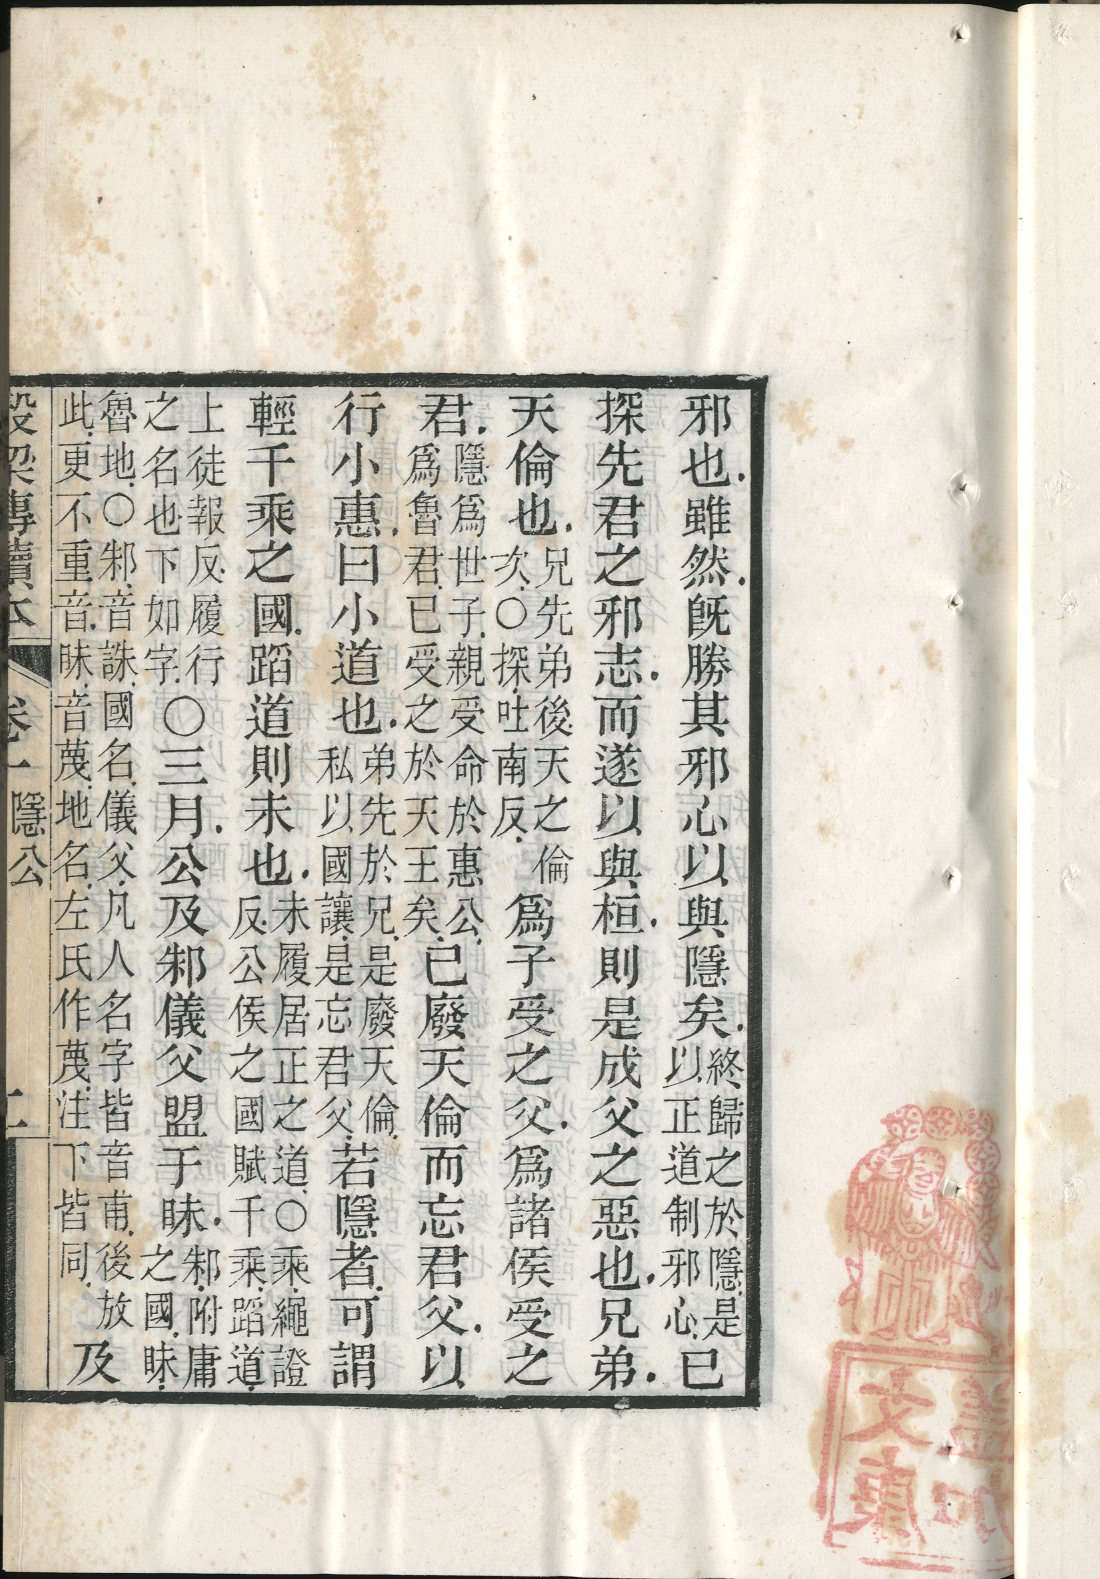 邪也雖然既勝其邪心以與隱矣終歸之於隱是以正道制邪心已
探先君之邪志而遂以與桓則是成父之惡也兄弟
天倫也兄先弟後天之倫次○探吐南反爲子受之父爲諸侯受之
君隱爲世子親受命於惠公爲魯君已受之於天王矣已廢天倫而忘君父以
行小惠曰小道也弟先於兄是廢天倫私以國讓是忘君父若隱者可謂
輕千乘之國蹈道則未也未履居正之道○乘繩證反公侯之國賦千乘蹈道
上徒報反履行之名也下如字○三月公及邾儀父盟于眛邾附庸之國眛
魯地○邾音誅國名儀父凡人名字皆音甫後放此更不重音眛音蔑地名左氏作蔑注下皆同及
穀梁傳讀本 卷一 隱公 二